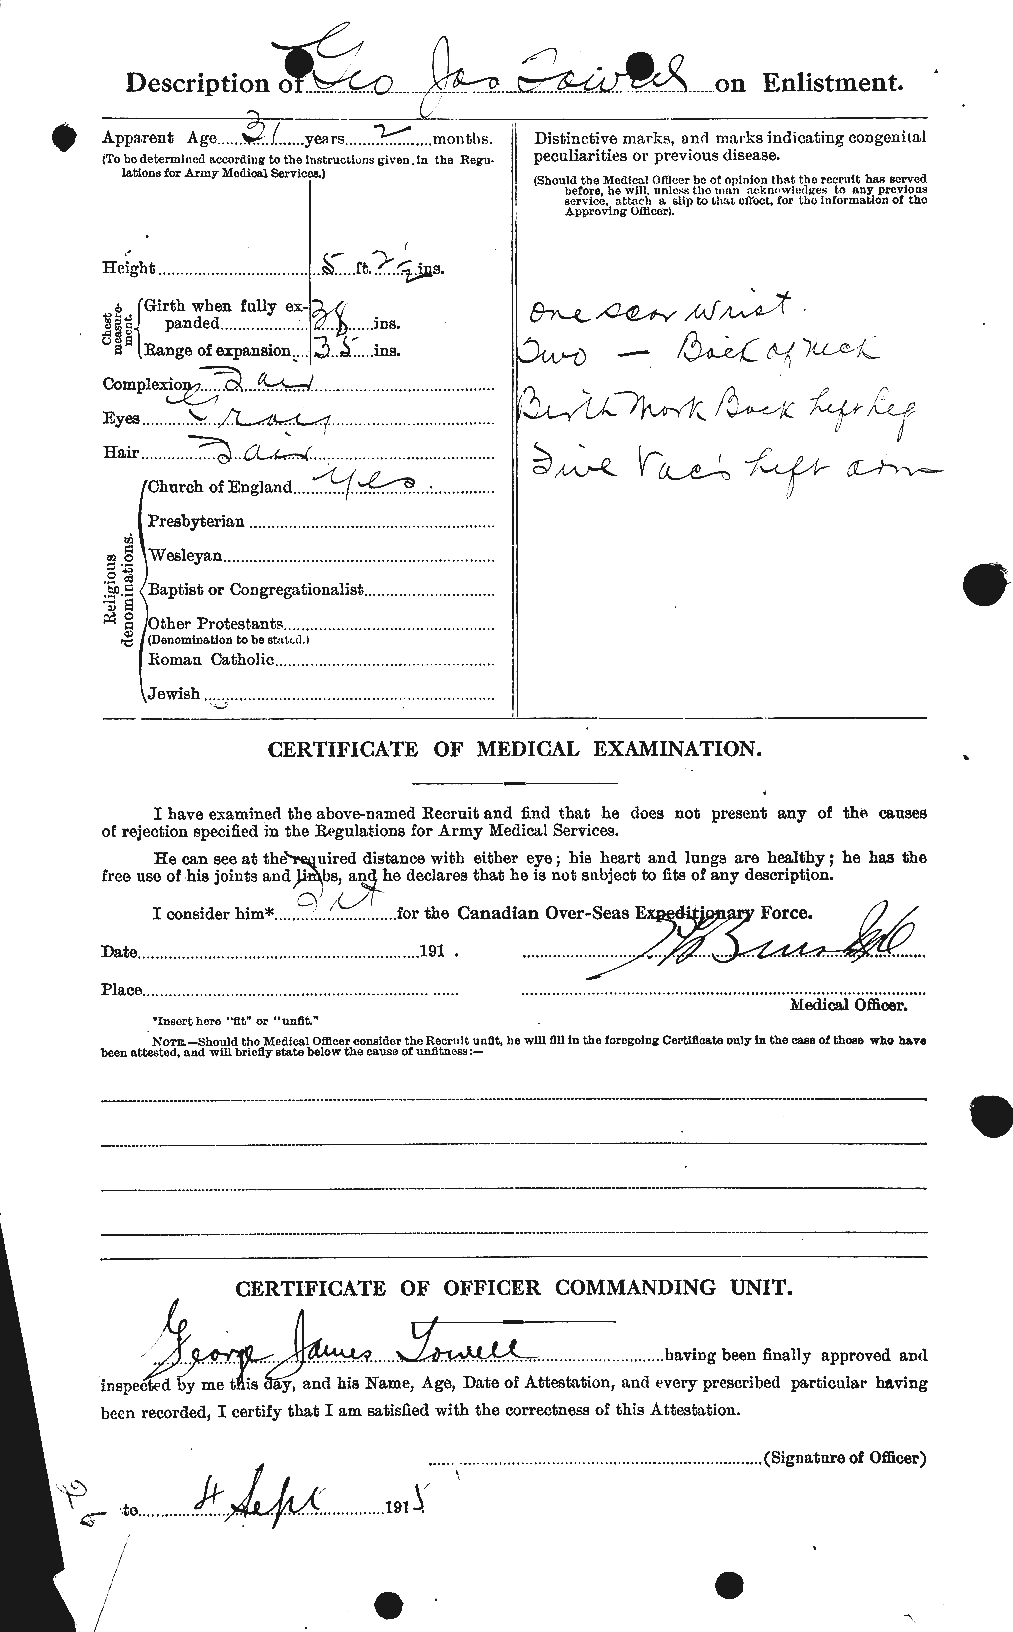 Description of Geo Jas Towell on Enlistment.
Apparent Age 31 years 2 months.
(To be determined according to the instructions given in the Regu-
lations for Army Medical Services.)
Height 5 ft. 2 1/2 ins.
Chest measure-ment.
Girth when fully ex-
panded 38 ins.
Range of expansion 35 ins.
Complexion Fair
Eyes Gray
Hair Fair
Religious denominations.
Church of England Yes
Presbyterian
Wesleyan
Baptist or Congregationalist
Other Protestants
(Denomination to be stated.)
Roman Catholic
Jewish
Distinctive marks, and marks indicating congenital
peculiarities or previous disease.
(Should the Medical Officer be of opinion that the recruit has served
before, he will, unless the man acknowledges to any previous
service, attach a slip to that effect, for the information of the
Approving Officer).
one scar wrist.
Two — Back of neck
Birth Mark Back Left Leg
Five Vac's Left arm
CERTIFICATE OF MEDICAL EXAMINATION.
I have examined the above-named Recruit and find that he does not present any of the causes
of rejection specified in the Regulations for Army Medical Services.
He can see at the required distance with either eye; his heart and lungs are healthy; he has the
free use of his joints and limbs, and he declares that he is not subject to fits of any description.
I consider him* Fit for the Canadian Over-Seas Expeditionary Force.
Date 191 .
Place
Medical Officer.
*Insert here "fit" or "unfit."
NOTE.—Should the Medical Officer consider the Recruit unfit, he will fill in the foregoing Certificate only in the case of those who have
been attested, and will briefly state below the cause of unfitness:—
CERTIFICATE OF OFFICER COMMANDING UNIT.
George James Towell having been finally approved and
inspected by me this day, and his Name, Age, Date of Attestation, and every prescribed particular having
been recorded, I certify that I am satisfied with the correctness of this Attestation.
(Signature of Officer)
to 4 Sept 1915